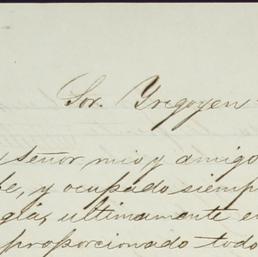 Sor. Yregoyen
señor mio y amigo
be, y ocupado siemp
gla, ultimamente e
proporcionado todo